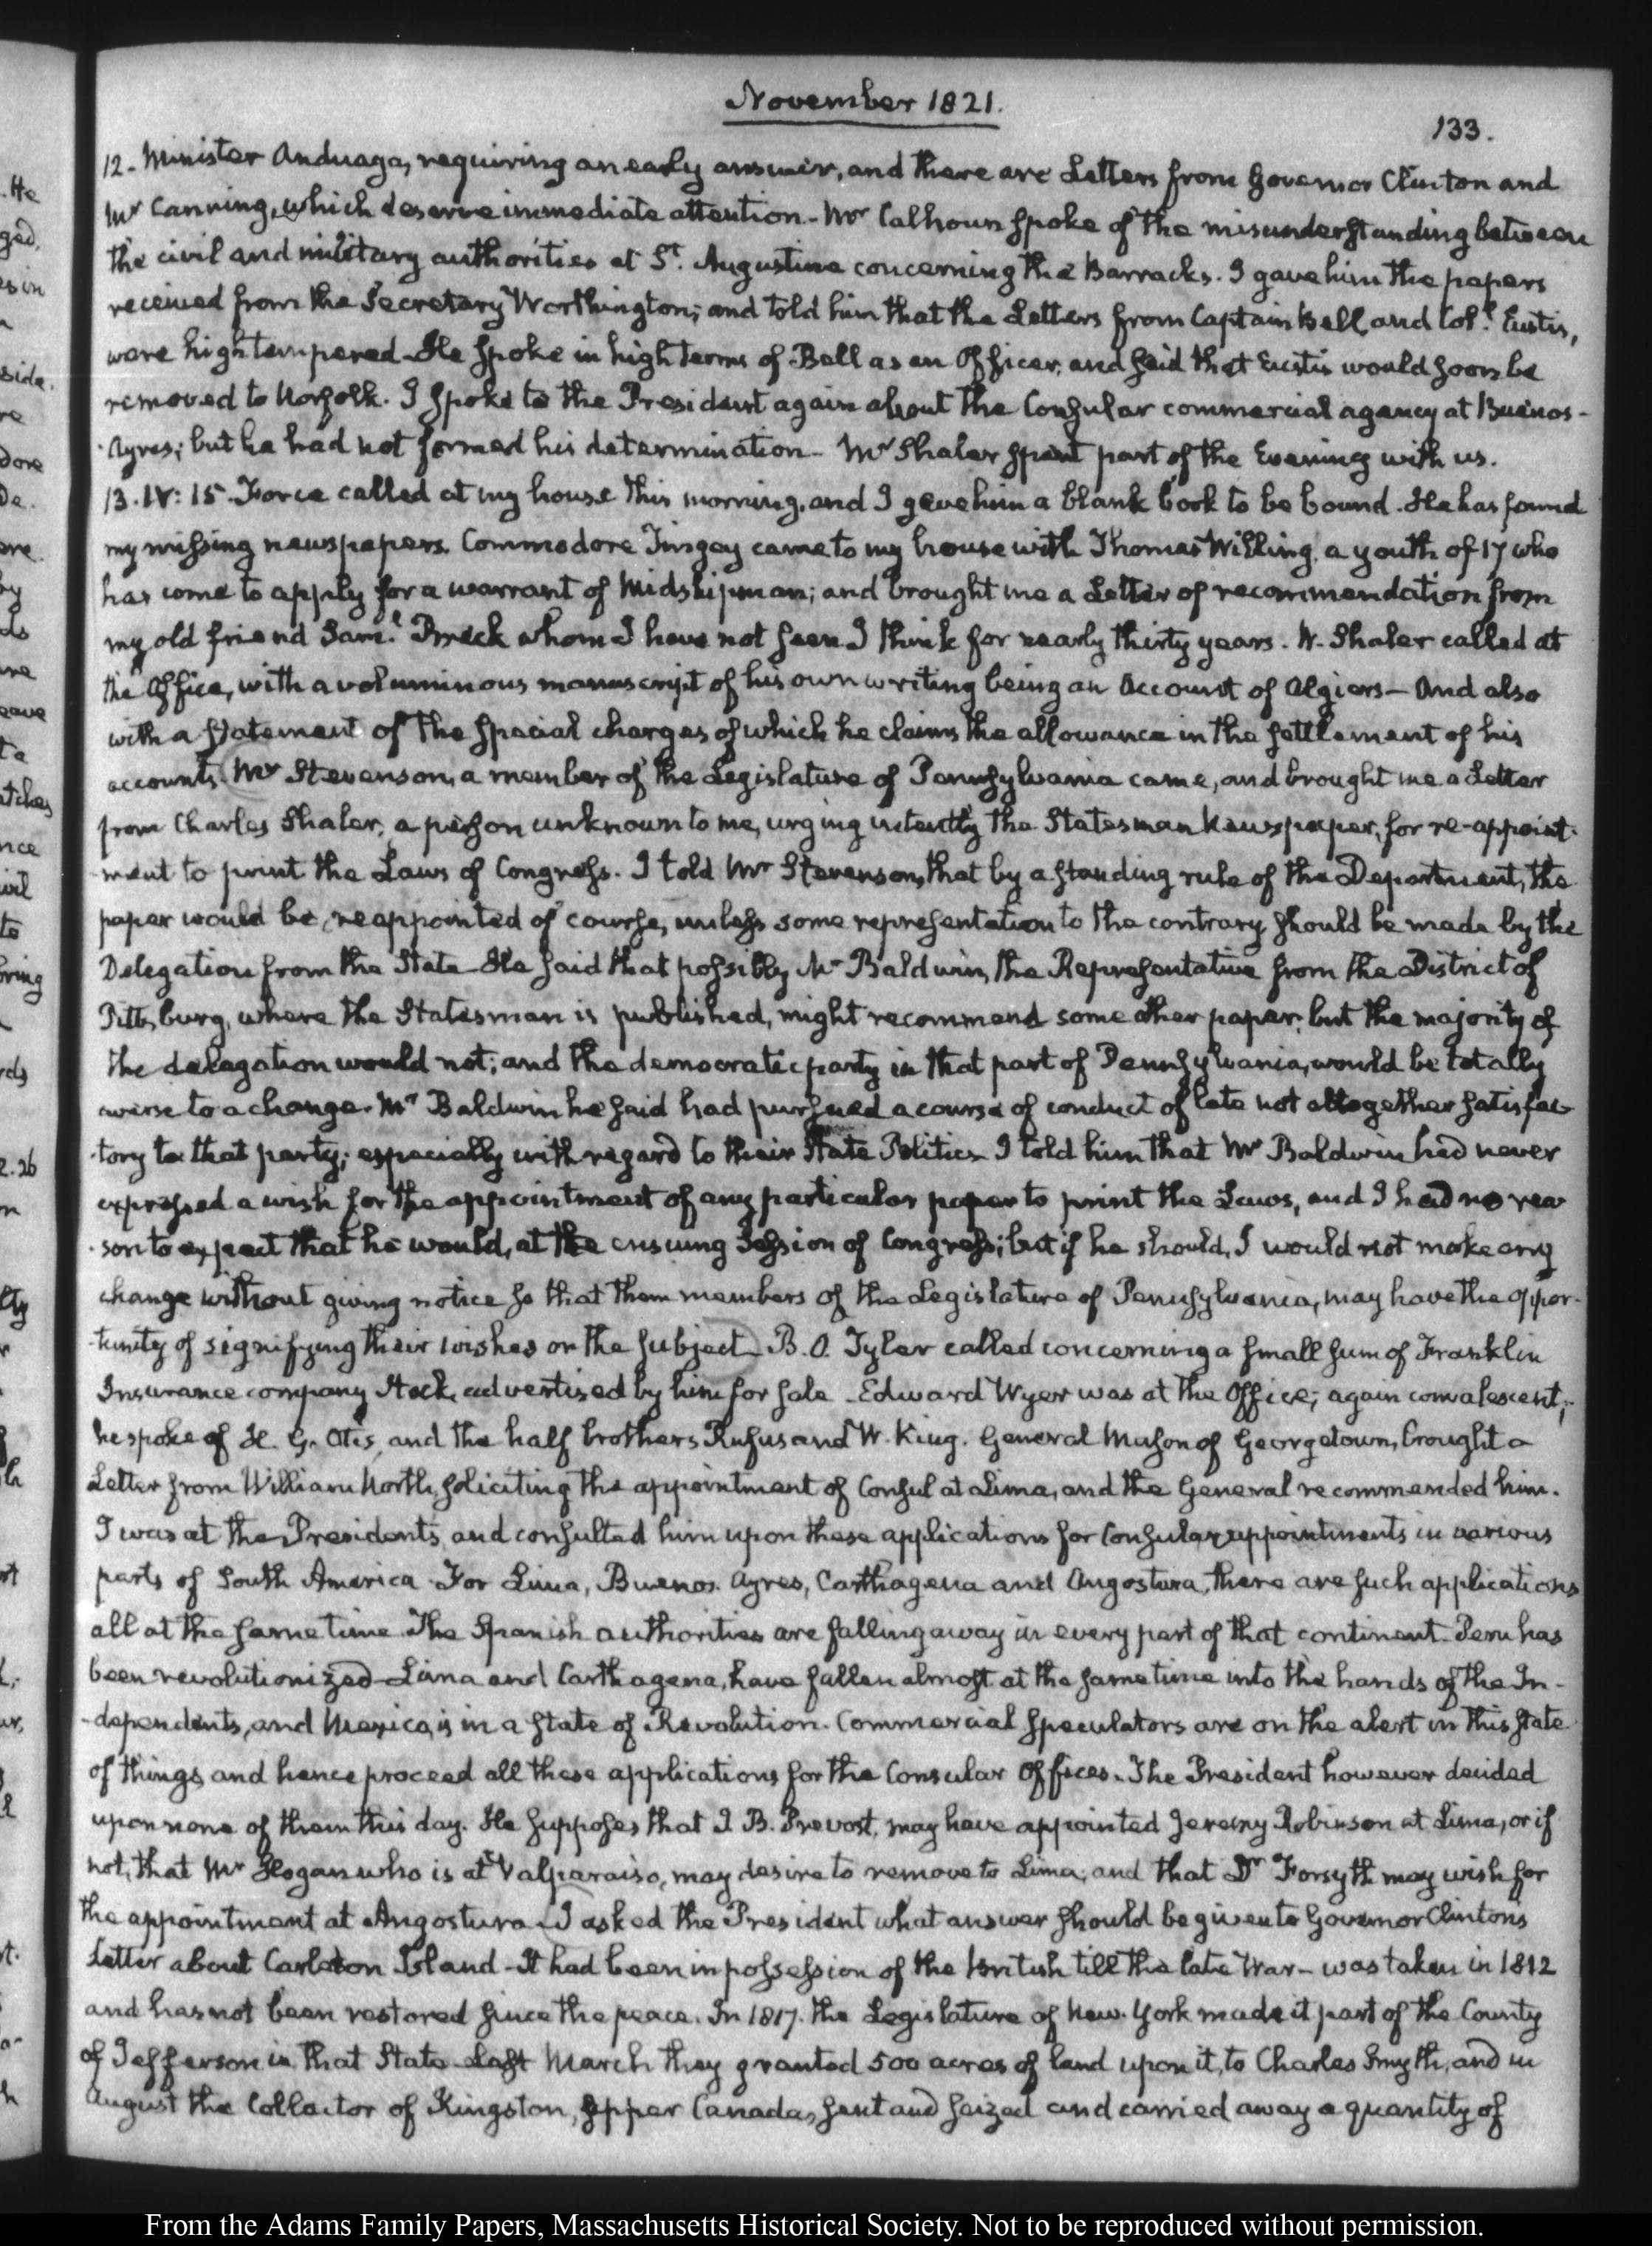 November 1821.
133.
12. Minister Anduaga, requiring an early answer, and there are Letters from Governor Clinton and
Mr Canning, which deserve immediate attention. Mr Calhoun spoke of the misunderstanding between
the civil and military authorities at St. Augustine concerning the Barracks. I gave him the papers
received from the Secretary Worthington; and told him that the Letters from Captain Bell and Col.l Eustis,
were high tempered. He spoke in high terms of Bell as an Officer, and said that Eustis would soon be
removed to Norfolk. I spoke to the President again about the Consular commercial agency at Buenos-
Ayres; but he had not formed his determination. Mr Shaler spent part of the Evening with us.
13. IV: 15. Force called at my house this morning, and I gave him a blank book to be bound. He has found
my missing newspapers. Commodore Tingey came to my house with Thomas Willing, a youth of 17 who
has come to apply for a warrant of Midshipman; and brought me a Letter of recommendation from
my old friend Saml. Breck whom I have not seen I think for nearly thirty years. W. Shaler called at
the Office, with a voluminous manuscript of his own writing being an Account of Algiers— And also
with a statement of the special charges of which he claims the allowance in the settlement of his
accounts. Mr Stevenson, a member of the Legislature of Pennsylvania came, and brought me a Letter
from Charles Shaler, a person unknown to me, urging intently the Statesman Newspaper, for re-appoint-
ment to print the Laws of Congress. I told Mr Stevenson, that by a standing rule of the Department, the
paper would be, reappointed of course, unless some representation to the contrary should be made by the
Delegation from the State. He said that possibly Mr Baldwin, the Representative from the District of
Pittsburg, where the Statesman is published, might recommend some other paper; but the majority of
the delegation would not; and the democratic party in that part of Pennsylvania, would be totally
averse to a change. Mr Baldwin he said had pursued a course of conduct of late not altogether satisfac-
tory to that party; especially with regard to their State Politics. I told him that Mr Baldwin had never
expressed a wish for the appointment of any particular paper to print the Laws, and I had no rea-
son to expect that he would, at the ensuing Session of Congress; but if he should, I would not make any
change without giving notice so that them members of the Legislature of Pennsylvania, may have the oppor-
tunity of signifying their wishes on the subject. B. O. Tyler called concerning a small sum of Franklin
Insurance company Stock, advertized by him for sale. Edward Wyer was at the Office; again convalescent;
he spoke of H. G. Otis, and the half brothers Rufus and W. King. General Mason of Georgetown, brought a
Letter from William North, soliciting the appointment of Consul at Lima, and the General recommended him.
I was at the Presidents, and consulted him upon these applications for Consular appointments in various
parts of South America. For Lima, Buenos Ayres, Carthagena and Angostura, there are such applications
all at the same time. The Spanish authorities are falling away in every part of that continent. Peru has
been revolutionized. Lima and Carthagena, have fallen almost at the same time into the hands of the In-
dependents, and Mexico, is in a state of Revolution. Commercial Speculators are on the alert in this state
of things, and hence proceed all these applications for the Consular Offices. The President however decided
upon none of them this day. He supposes that J. B. Prevost, may have appointed Jeremy Robinson at Lima, or if
not, that Mr Hogan who is at Valparaiso, may desire to remove to Lima; and that Dr Forsyth may wish for
the appointment at Angostura. I asked the President what answer should be given to Governor Clinton's
Letter about Carleton Island. It had been in possession of the British till the late War— was taken in 1812
and has not been restored since the peace. In 1817. the Legislature of New-York made it part of the County
of Jefferson in that State. Last March they granted 500 acres of land upon it, to Charles Smyth, and in
August the Collector of Kingston, Upper Canada, sent and seized and carried away a quantity of
From the Adams Family Papers, Massachusetts Historical Society. Not to be reproduced without permission.